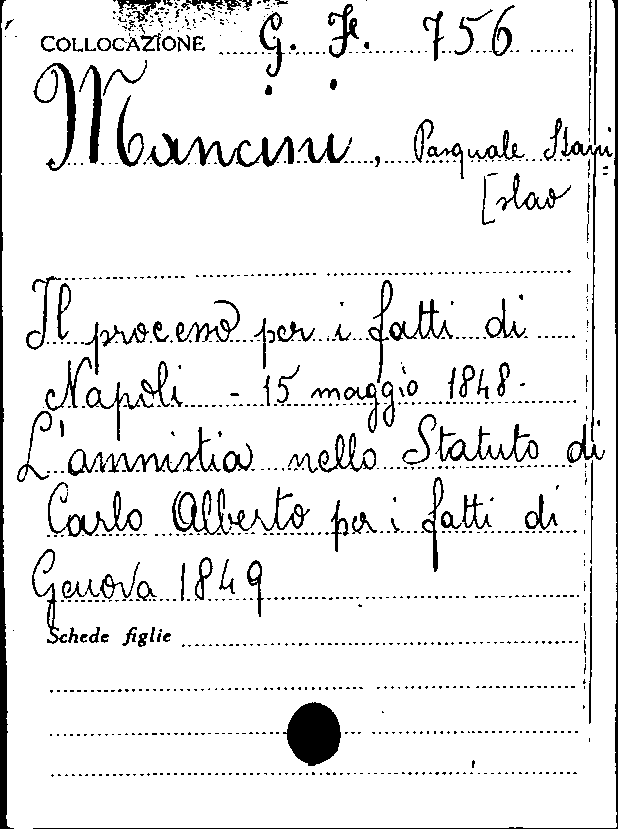 COLLOCAZIONE G. F. 756
Mancini, Pasquale Stani=
[slao
Il processo per i fatti di
Napoli - 15 maggio 1848.
L'amnistia nello Statuto di
Carlo Alberto per i fatti di
Genova 1849
Schede figlie